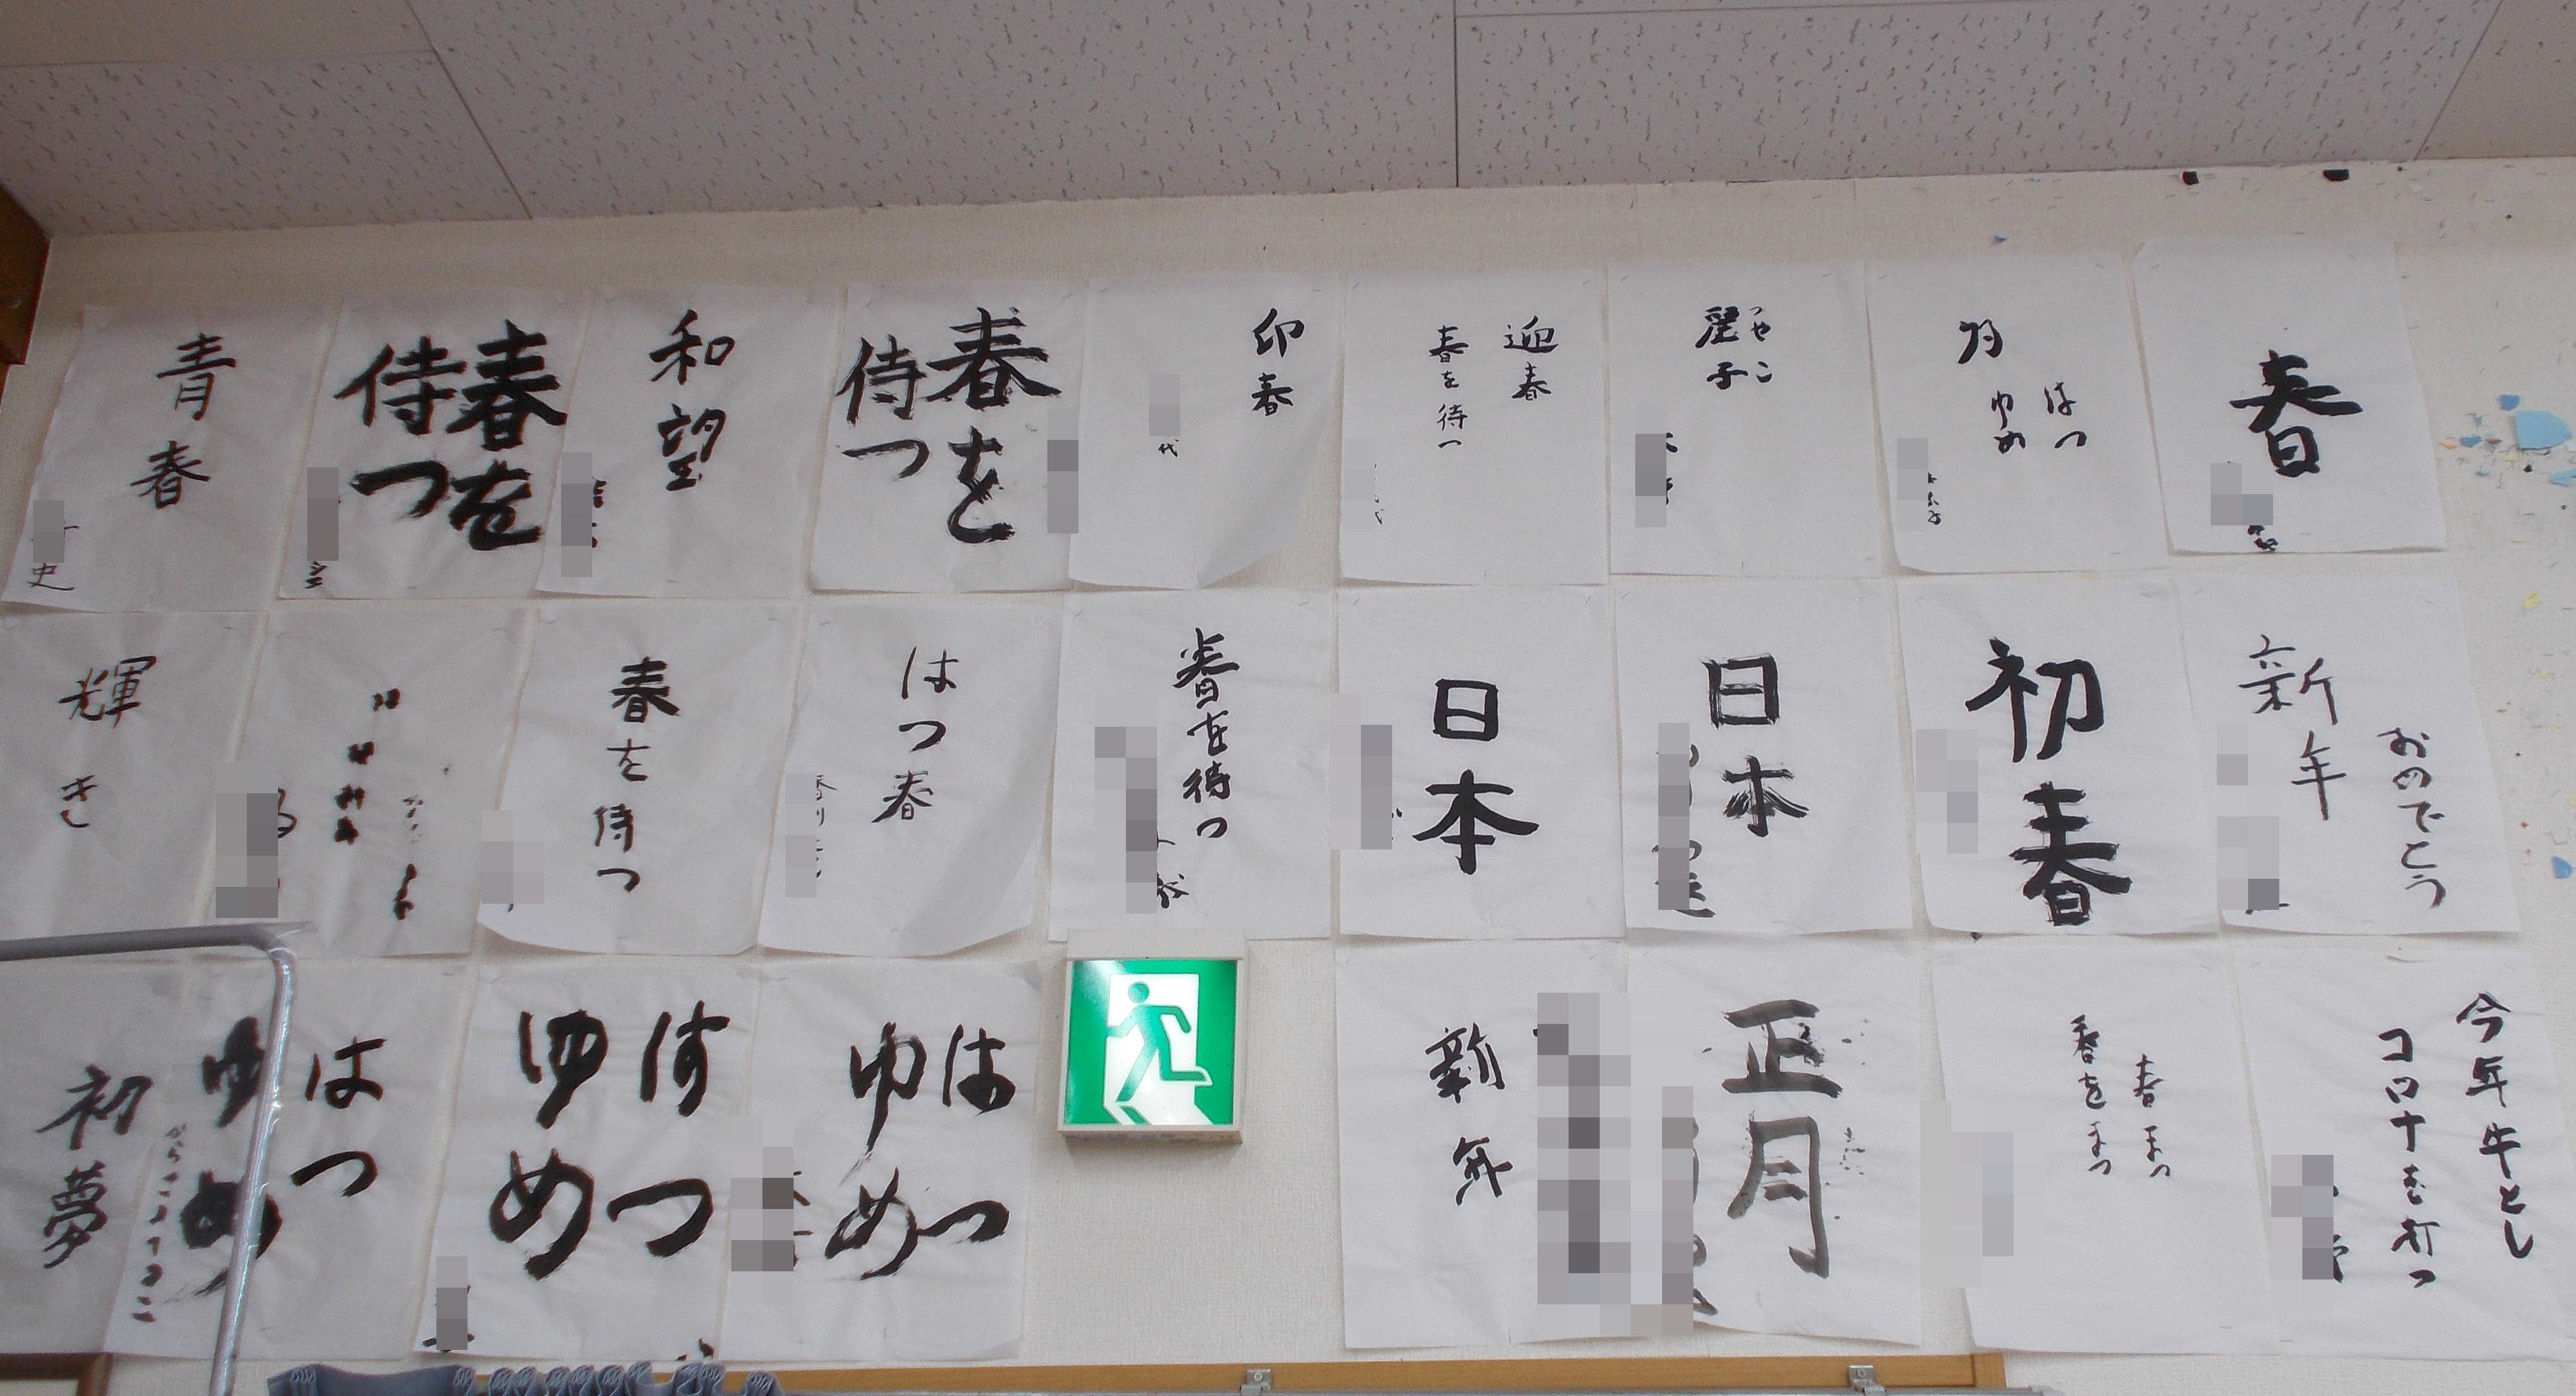 青春
春を
侍つ
和望
春を
侍つ
春
迎春
春を待つ
麗子
はつ
ゆめ
春
輝き
春を侍つ
はつ春
春を待つ
日本
日本
初春
新年
おめでとう
初夢
はつ
ゆめ
はつ
ゆめ
はつ
ゆめ
新年
正月
春まつ
春をまつ
今年牛とし
コロナを打つ